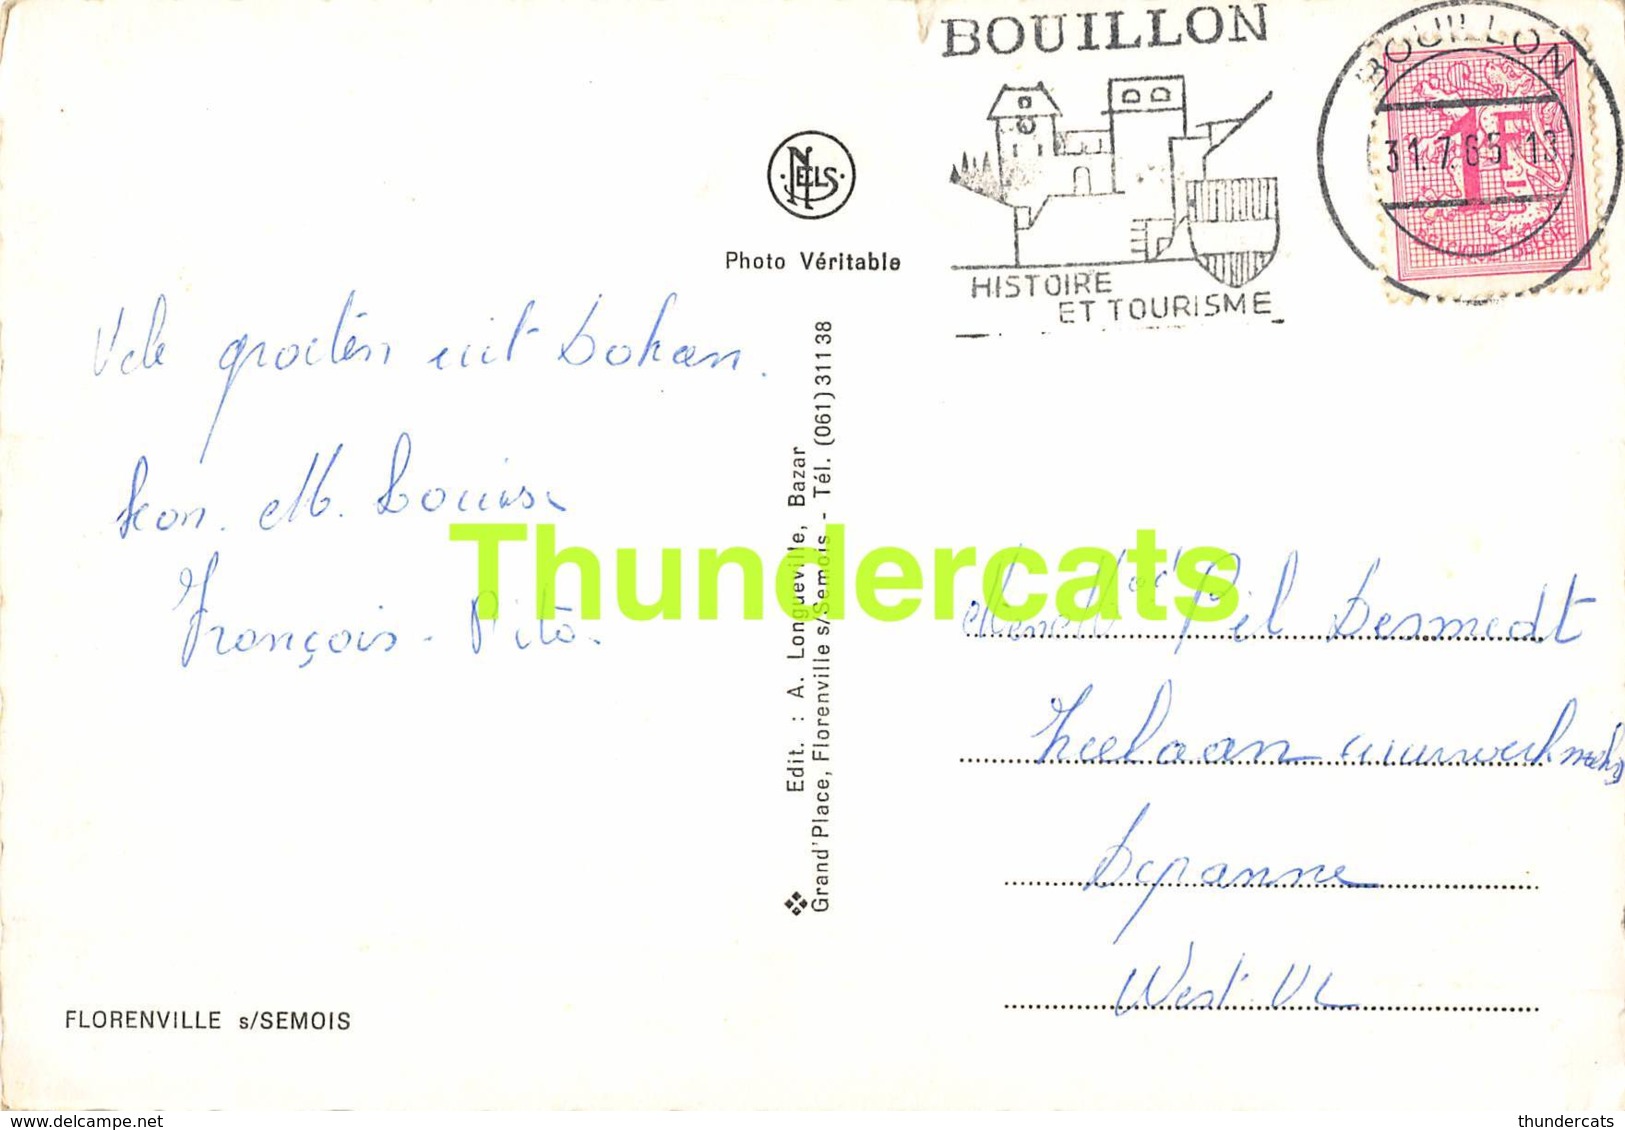 BOUILLON
BOUILLON
31.7.65-18
1F
BELGIQUE-BELGIË
HISTOIRE
ET TOURISME
NELS
Photo Véritable
Vele groeten uit Bohan.
Leon. M. Louise
François - Rita.
Thundercats
Edit. : A. Longueville, Bazar
Grand'Place, Florenville s/Semois - Tél. (061) 31138
Desmedt
Zeelaan
Depanne
West. VL
FLORENVILLE s/SEMOIS
www.delcampe.net
thundercats